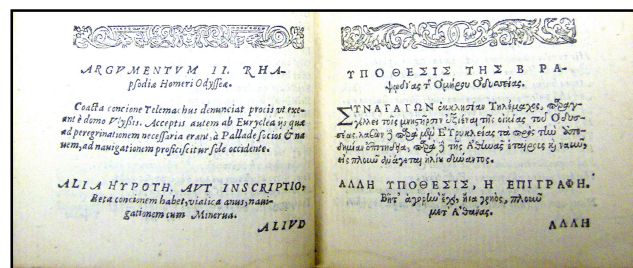 ARGVMENTVM II. RHA-
psodiæ Homeri Odysseæ.
Coacta concione Telemachus denunciat procis vt exe-
ant è domo Vlyßis. Acceptis autem ab Euryclea ijs quæ
ad peregrinationem necessaria erant, à Pallade socios & na
uem, ad nauigationem proficiscitur sole occidente.
ALIA HYPOTH. AVT INSCRIPTIO,
Beta concionem habet, viatica anus, naui-
gationem cum Minerua.
ALIVD
ΥΠΟΘΕΣΙΣ ΤΗΣ Β ΡΑ-
ψῳδίας τ῀ Ὁμήρου Ὀδυσσείας.
ΣΥΝΑΓΑΓΩΝ ἐκκλησίαν Τηλέμαχος, παραγ-
γέλλει τοῖς μνηστῆρσιν ἐξιέναι τῆς οἰκίας τοῦ Ὀδυσ-
σέας. λαβὼν δὲ παρὰ μὲν Εὐρυκλείας τὰ πρὸς τὴν ἀπο-
δημίαν ἐπιτήδεια, παρὰ δὲ τῆς Ἀθηνᾶς ἑταίρους καὶ ναῦν,
εἰς πλοῦν ἀνάγεται ἡλίου δύναντος.
ΑΛΛΗ ΥΠΟΘΕΣΙΣ, Η ΕΠΙΓΡΑΦΗ.
Βῆτ' ἀγορὴν ἔχει, ἤϊα γρηὸς, πλοῦν
μετ' Ἀθήνης.
ΑΛΛΗ